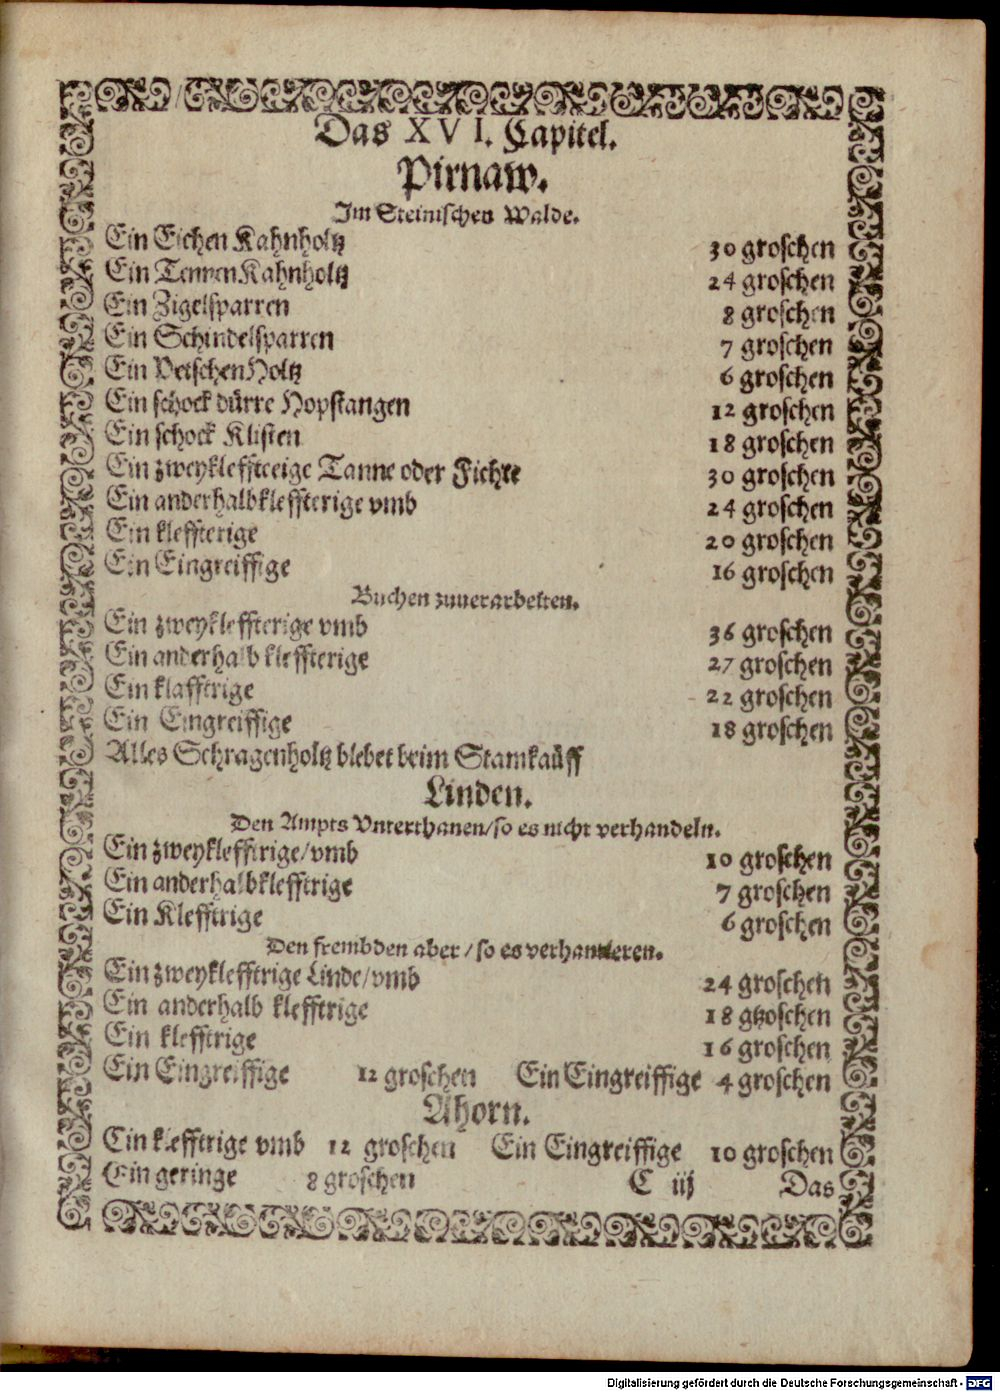 Das XVI. Capitel.
Pirnaw.
Im Steinischen Walde.
Ein Eichen Kahnholtz 30 groschen
Ein Tennen Kahnholtz 24 groschen
Ein Zigelsparren 8 groschen
Ein Schindelsparren 7 groschen
Ein Vetschen Holtz 6 groschen
Ein schock dürre Hopstangen 12 groschen
Ein schock Klisten 18 groschen
Ein zweykleffteeige Tanne oder Fichte 30 groschen
Ein anderhalbkleffterige vmb 24 groschen
Ein kleffterige 20 groschen
Ein Eingreiffige 16 groschen
Buchen zuuerarbeiten.
Ein zweykleffterige vmb 36 groschen
Ein anderhalb kleffterige 27 groschen
Ein klafftrige 22 groschen
Ein Eingreiffige 18 groschen
Alles Schragenholtz blebet beim Stamkaüff
Linden.
Den Ampts Vnterthanen/so es nicht verhandeln.
Ein zweyklefftrige/vmb 10 groschen
Ein anderhalbklefftrige 7 groschen
Ein Klefftrige 6 groschen
Den frembden aber/so es verhantieren.
Ein zweyklefftrige Linde/vmb 24 groschen
Ein anderhalb klefftrige 18 gtzoschen
Ein klefftrige 16 groschen
Ein Eingreiffige 12 groschen Ein Eingreiffige 4 groschen
Ahorn.
Ein klefftrige vmb 12 groschen Ein Eingreiffige 10 groschen
Ein geringe 8 groschen C iij Das
Digitalisierung gefördert durch die Deutsche Forschungsgemeinschaft - DFG